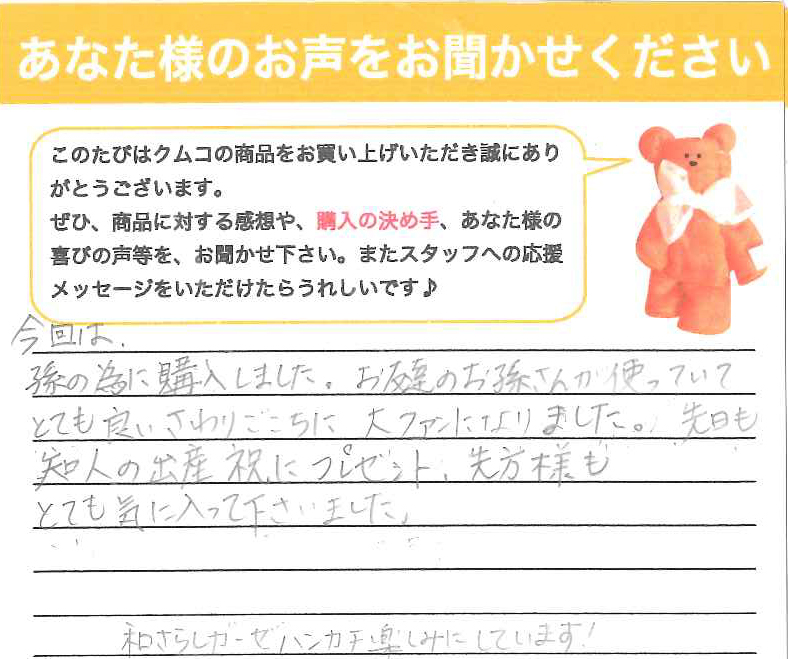 あなた様のお声をお聞かせください
このたびはクムコの商品をお買い上げいただき誠にあり
がとうございます。
ぜひ、商品に対する感想や、購入の決め手、あなた様の
喜びの声等を、お聞かせ下さい。またスタッフへの応援
メッセージをいただけたらうれしいです♪
今回は、
孫の為に購入しました。お友達のお孫さんが使っていて
とても良いさわりごこちに大ファンになりました。先日も
知人の出産祝にプレゼント、先方様も
とても気に入って下さいました。
和さらしガーゼハンカチ楽しみにしています!